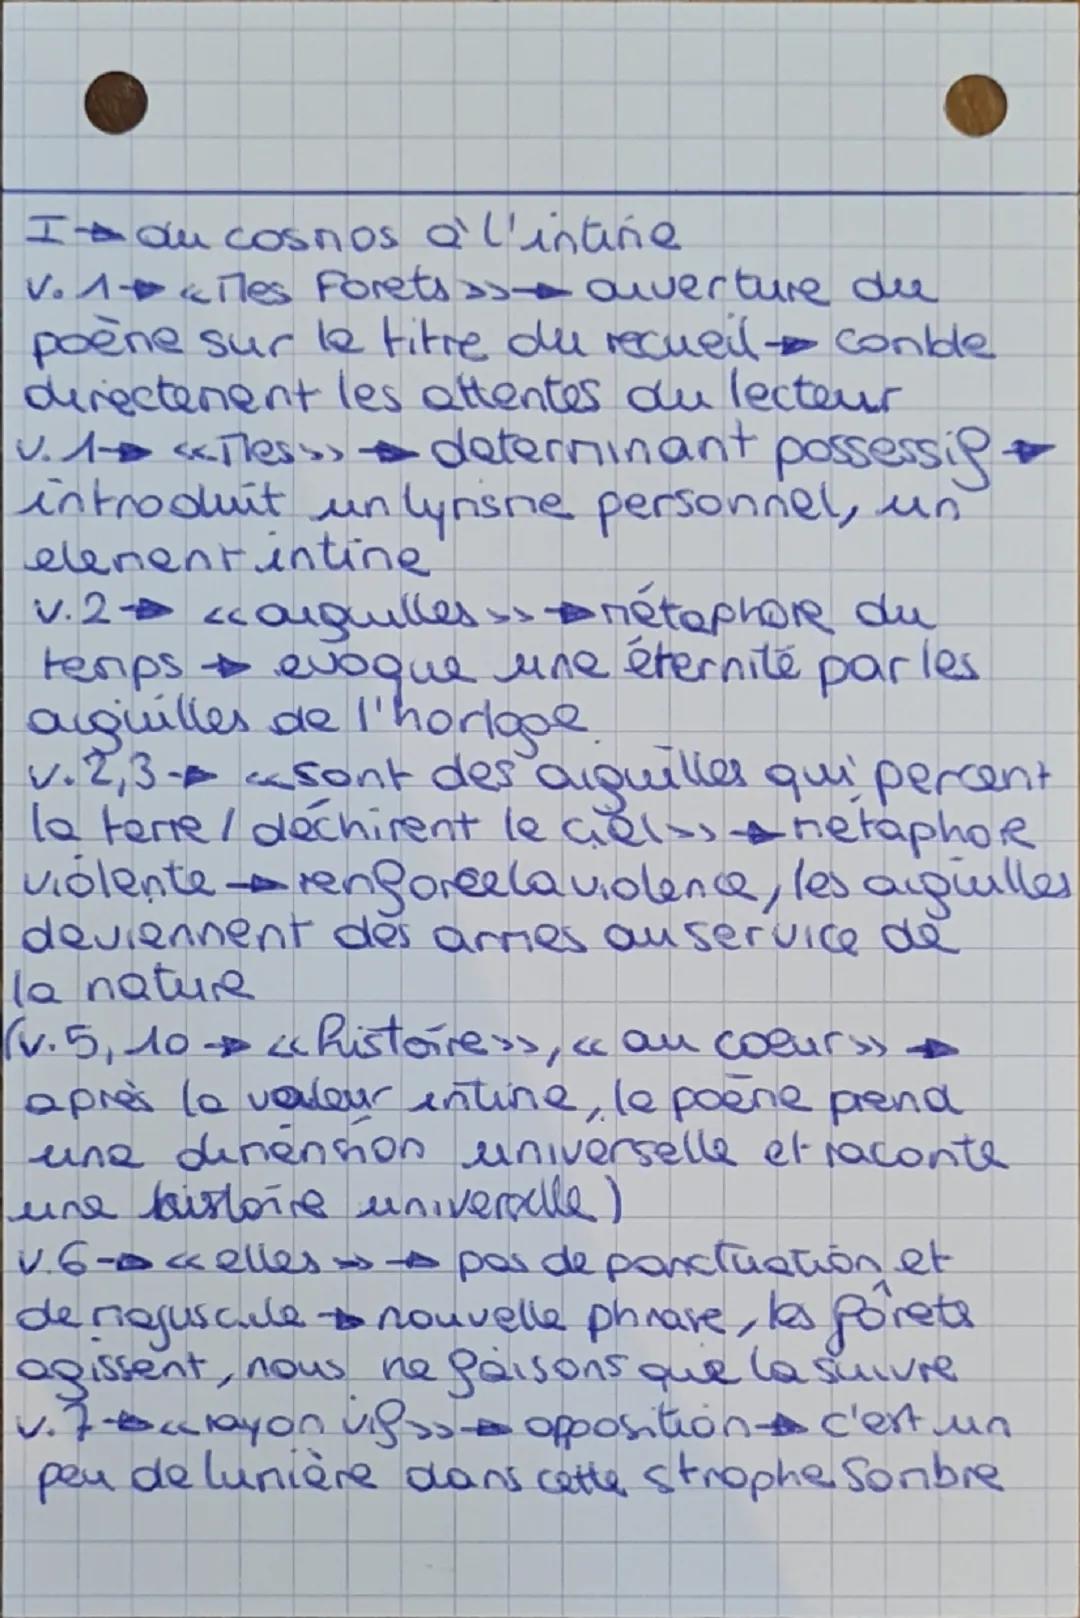 I → du cosmos à l'intime
v. 1 → « Mes Forets » → ouverture du
poème sur le titre du recueil → comble
directement les attentes du lecteur
v. 1 → « Mes » → determinant possessif →
introduit un lyrisme personnel, un
element intime
v. 2 → « aiguilles » → métaphore du
temps → evoque une éternité par les
aiguilles de l'horlgoe
v. 2,3 → « sont des aiguilles qui percent
la terre / déchirent le ciel » → métaphore
violente → renforce la violence, les aiguilles
deviennent des armes au service de
la nature
(v. 5, 10 → « histoire », « au coeur » →
après la valeur intime, le poème prend
une dimension universelle et raconte
une histoire universelle)
v. 6 → « elles » → pas de ponctuation et
de majuscule → nouvelle phrase, les forêts
agissent, nous ne faisons que la suivre
v. 7 → « rayon vif » → opposition → c'est un
peu de lumière dans cette strophe sombre